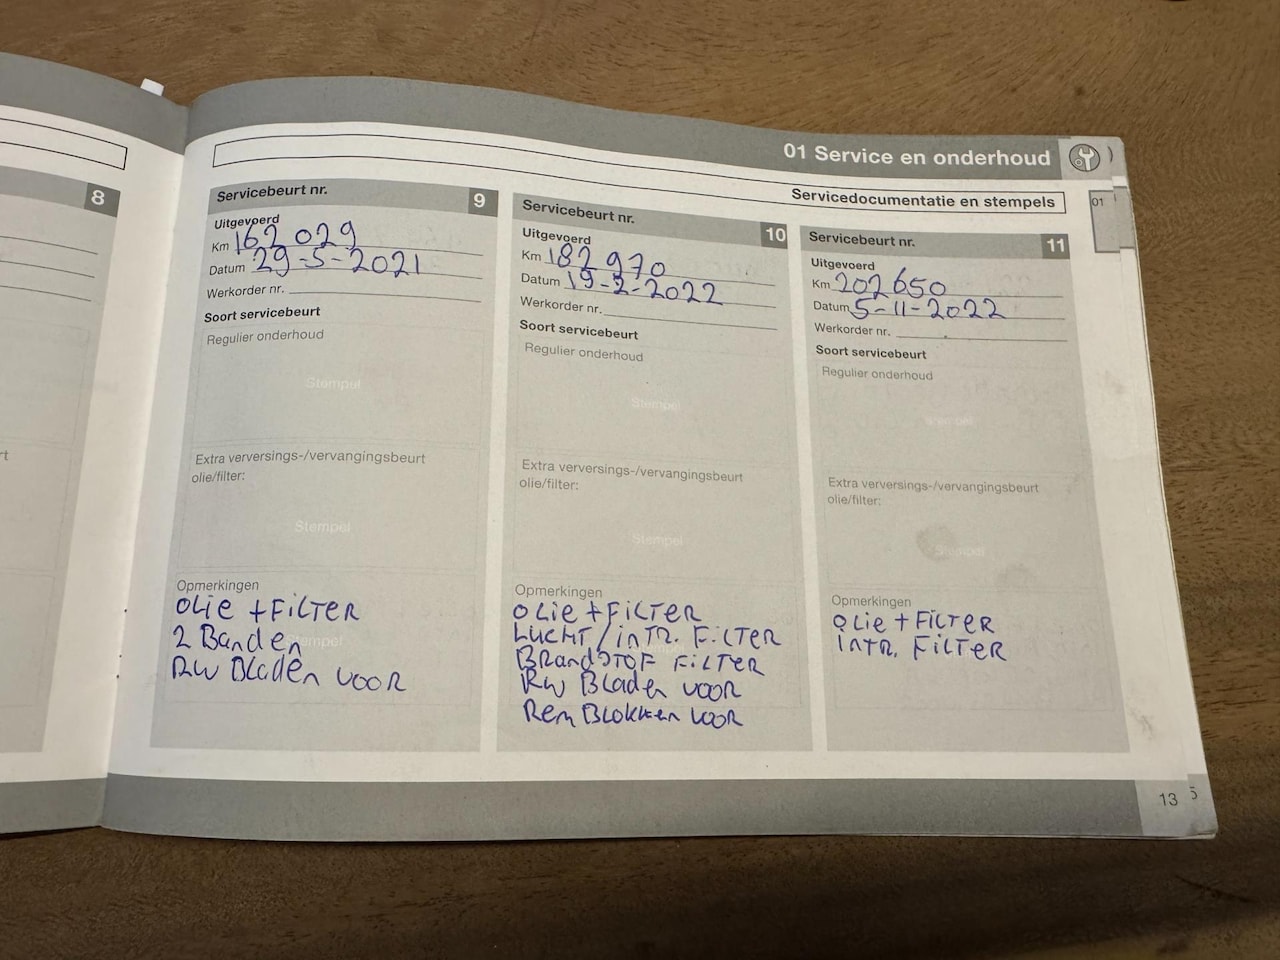 01 Service en onderhoud
Servicedocumentatie en stempels
01
8
Servicebeurt nr. 9
Uitgevoerd
Km 162 029
Datum 29-5-2021
Werkorder nr.
Soort servicebeurt
Regulier onderhoud
Stempel
Extra verversings-/vervangingsbeurt
olie/filter:
Stempel
Opmerkingen
OLie + FiLTER
Stempel
2 Banden
RW BLaden VOOR
Servicebeurt nr. 10
Uitgevoerd
Km 182 970
Datum 19-2-2022
Werkorder nr.
Soort servicebeurt
Regulier onderhoud
Stempel
Extra verversings-/vervangingsbeurt
olie/filter:
Stempel
Opmerkingen
OLie + FiLTER
LUCHT / inTR. FiLTER
BRandSTOF FiLTER
RW BLaden VOOR
Rem BLOKKen VOOR
Servicebeurt nr. 11
Uitgevoerd
Km 202 650
Datum 5-11-2022
Werkorder nr.
Soort servicebeurt
Regulier onderhoud
Stempel
Extra verversings-/vervangingsbeurt
olie/filter:
Stempel
Opmerkingen
OLie + FiLTER
inTR. FiLTER
13